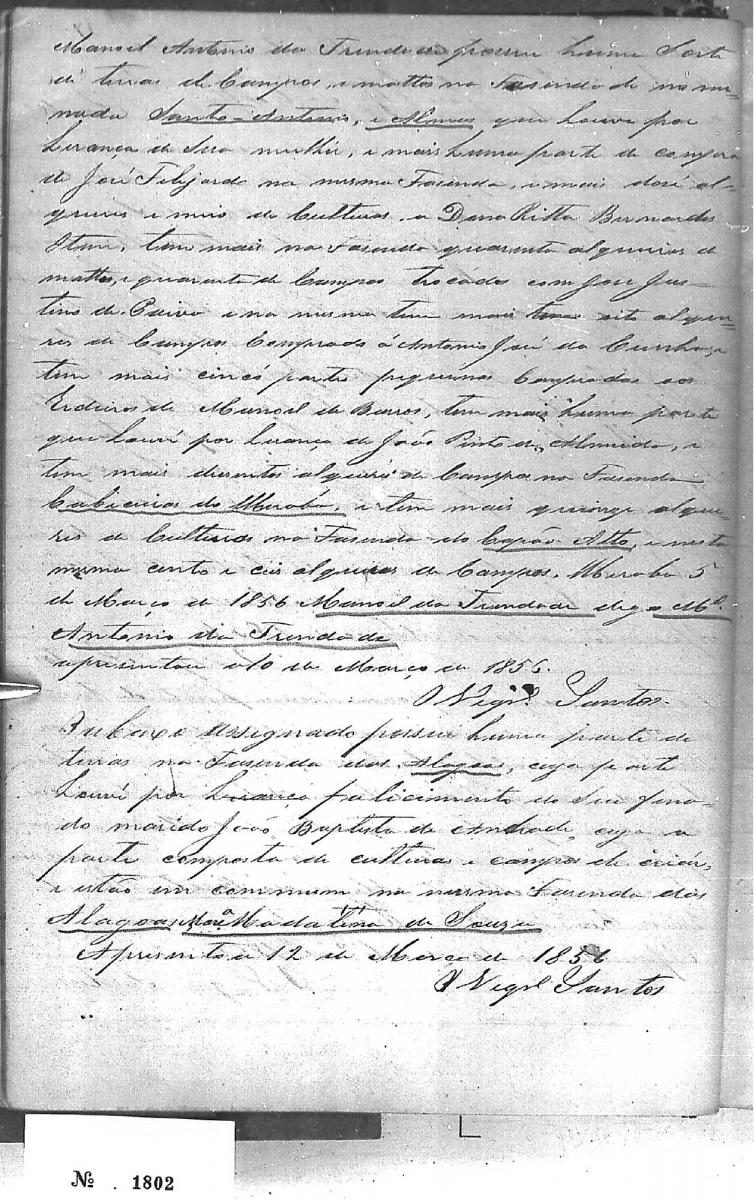 Manoel Antonio da Trindade possue huma Sorte
de terras de Campos, e mattos na Fasenda de nomi
nada Santo Antonio, e Almas que houve por
herança de Sua mulher, e mais huma parte de compra
de José na mesma Fasenda, e mais dosé al-
queires e meio de Culturas, a Dona Ritta Bernardes
Item, tem mais na Fasenda quarenta alqueires de
mattos, e quarenta de Campos trocados com José Jus-
tino de Paiva e na mesma tem mais oito alquei-
res de Campos Comprado á Antonio José da Cunha, e
tem mais cincó partes piquenas Compradas aos
Erdeiros de Manoel de Barros, tem mais huma parte
que houve por herança de João Pinto de Almeida, e
tem mais dusentos alqueires de Campos na Fasenda
Cabiceiras do Miraba, e tem mais quinze alquei
res de Culturas na Fasenda do Capão Alto, e nesta
mesma cento e alqueires de Campos. Miraba 5
de Março de 1856 Manoel da Trindade digo Ml.
Antonio da Trindade
apresentou a 10 de Março de 1856.
O Vigrº. Santos.
Abaixo assignado possue huma parte de
terras na Fasenda das Alagoas, cuja parte
houve por herança falicimento do Seu fina-
do marido João Baptista de Andrade, cuja a
parte composta de culturas e campos de criár,
e estão em commum na mesma Fasenda das
Alagoas Marª Madalena de Souza
Apresentou a 12 de Março de 1856
O Vigrº Santos
Nº . 1802